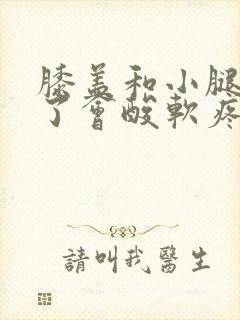 膝盖和小腿
了會酸軟疼
請叫我醫生